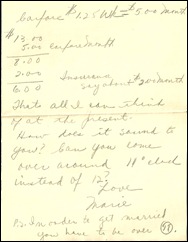 Carfare $1.25 Wk = $5.00 month
$13.00
5.00 carfare month
8.00
2.00 Insurance say about $2.00 month
6.00
Thats all I can think
of at the present.
How does it sound to
you? Can you come
over around 11 o'clock
instead of 12?
Love
Marie
P.S. In order to get married
you have to be over